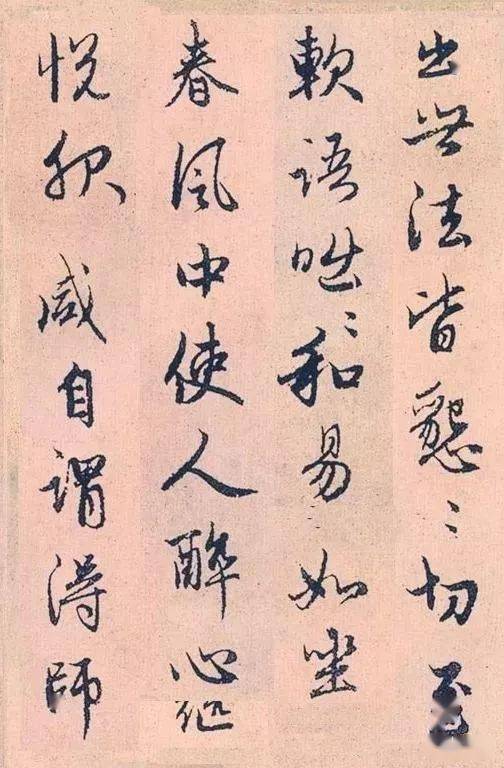 出世法皆懇〻切至
軟語〻和易如坐
春風中使人醉心
悅服咸自謂得師